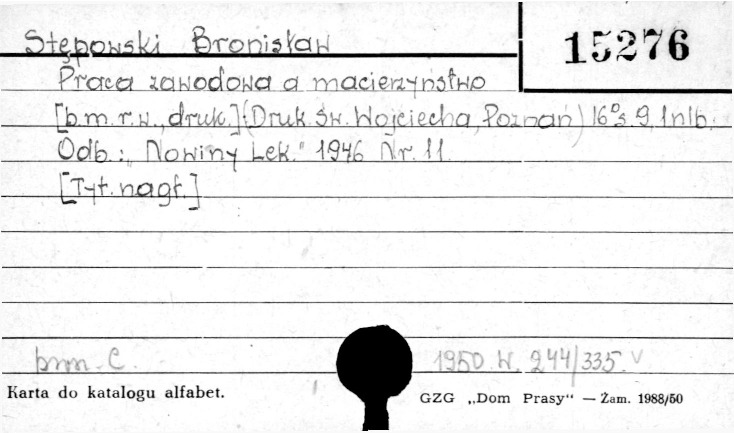 Stępowski Bronisław
15276
Praca zawodowa a macierzyństwo
[b.m.r.w., druk.] (Druk. Św. Wojciecha, Poznań) 16° s. 9, 1 nlb.
Odb.: "Nowiny Lek." 1946 Nr. 11.
[Tyt. nagł.]
1950. W. 244/335. V
Karta do katalogu alfabet.
GZG „Dom Prasy" — Zam. 1988/50